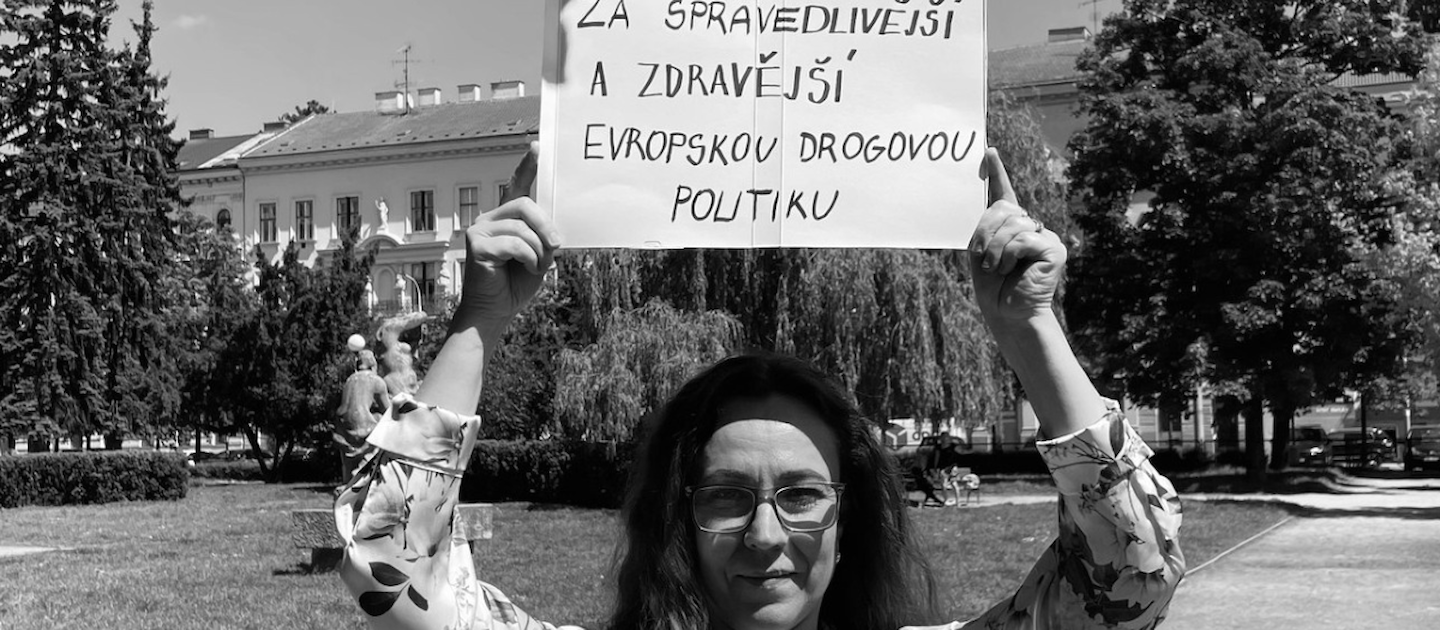 ZA SPRAVEDLIVEJŠÍ
A ZDRAVĚJŠÍ
EVROPSKOU DROGOVOU
POLITIKU